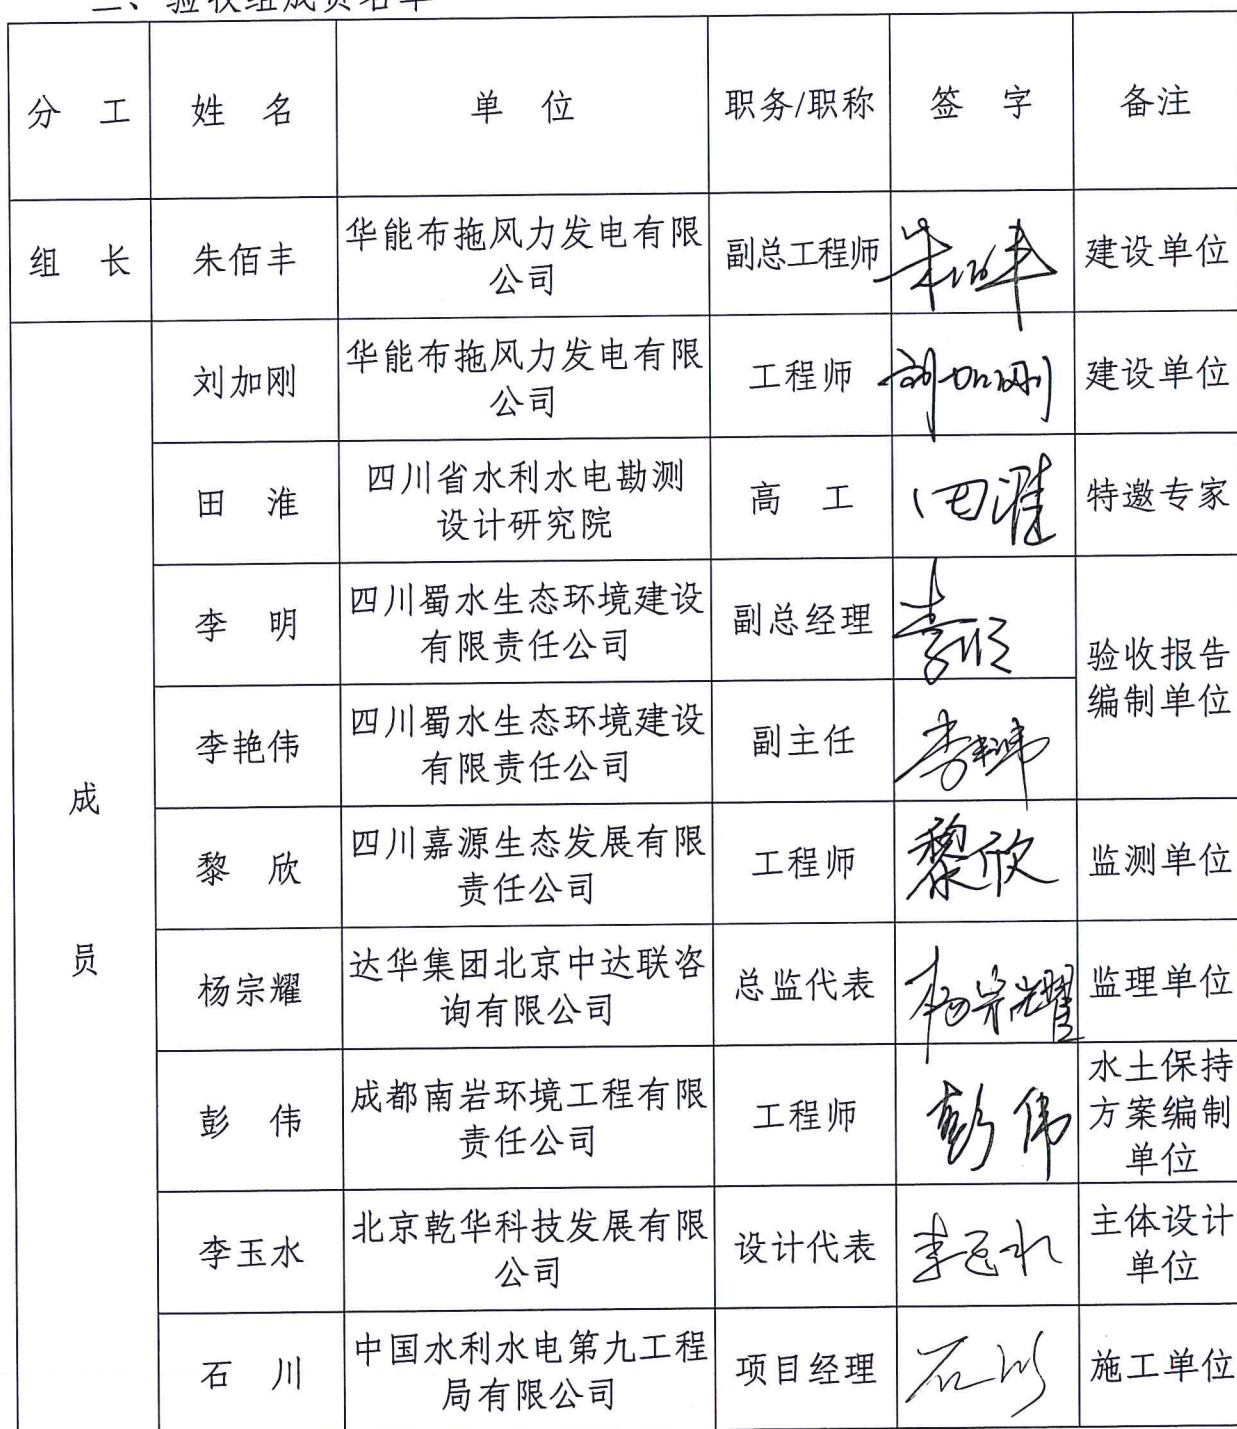 验收组成员名单
分 工 姓 名 单 位 职务/职称 签 字 备注
组 长 朱佰丰 华能布拖风力发电有限
公司 副总工程师 朱佰丰 建设单位
成 员
刘加刚 华能布拖风力发电有限
公司 工程师 刘加刚 建设单位
田 淮 四川省水利水电勘测
设计研究院 高 工 田淮 特邀专家
李 明 四川蜀水生态环境建设
有限责任公司 副总经理 李明 验收报告
编制单位
李艳伟 四川蜀水生态环境建设
有限责任公司 副主任 李艳伟
黎 欣 四川嘉源生态发展有限
责任公司 工程师 黎欣 监测单位
杨宗耀 达华集团北京中达联咨
询有限公司 总监代表 杨宗耀 监理单位
彭 伟 成都南岩环境工程有限
责任公司 工程师 彭伟 水土保持
方案编制
单位
李玉水 北京乾华科技发展有限
公司 设计代表 李玉水 主体设计
单位
石 川 中国水利水电第九工程
局有限公司 项目经理 石川 施工单位